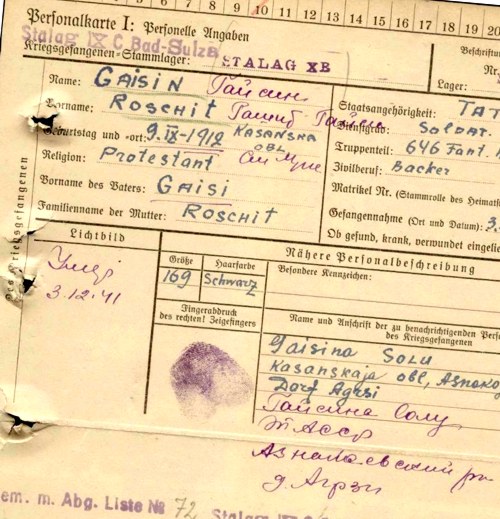 8 9 10 11 12 13 14 15 16 17 18 19 20
Personalkarte I: Personelle Angaben
Stalag IX C Bad-Sulza
Kriegsgefangenen-Stammlager: STALAG XB
Beschriftu
Lager:
Name: GAISIN Гайсин
Vorname: ROSCHIT Рашит Гайси
Geburtstag und -ort: 9.IX-1912 KASANSKA OBL
Religion: Protestant
Vorname des Vaters: GAISI
Familienname der Mutter: ROSCHIT
Staatsangehörigkeit: TAT
Dienstgrad: SOLDAT.
Truppenteil: 646 Fant.
Zivilberuf: Backer
Matrikel Nr. (Stammrolle des Heimatst
Gefangennahme (Ort und Datum): 3.
Ob gesund, krank, verwundet eingelie
des Kriegsgefangenen
Lichtbild
3.12.41
Nähere Personalbeschreibung
Größe
169
Haarfarbe
Schwarz
Besondere Kennzeichen:
Fingerabdruck
des rechten! Zeigefingers
Name und Anschrift der zu benachrichtigenden Perso
des Kriegsgefangenen
Gaisina SOLU
Kasanskaja obl, Asnako
Dorf Agrsi
Гайсина Солу
ТАССР
Азнакаевский рн
д. Агрзи
em. m. Abg. Liste № 72 Stalag